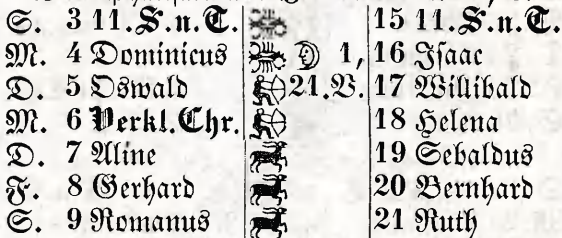 S. 3 11.S.n.T. 15 11.S.n.T.
M. 4 Dominicus 1, 16 Isaac
D. 5 Oswald 21.V. 17 Willibald
M. 6 Verkl.Chr. 18 Helena
D. 7 Aline 19 Sebaldus
F. 8 Gerhard 20 Bernhard
S. 9 Romanus 21 Ruth